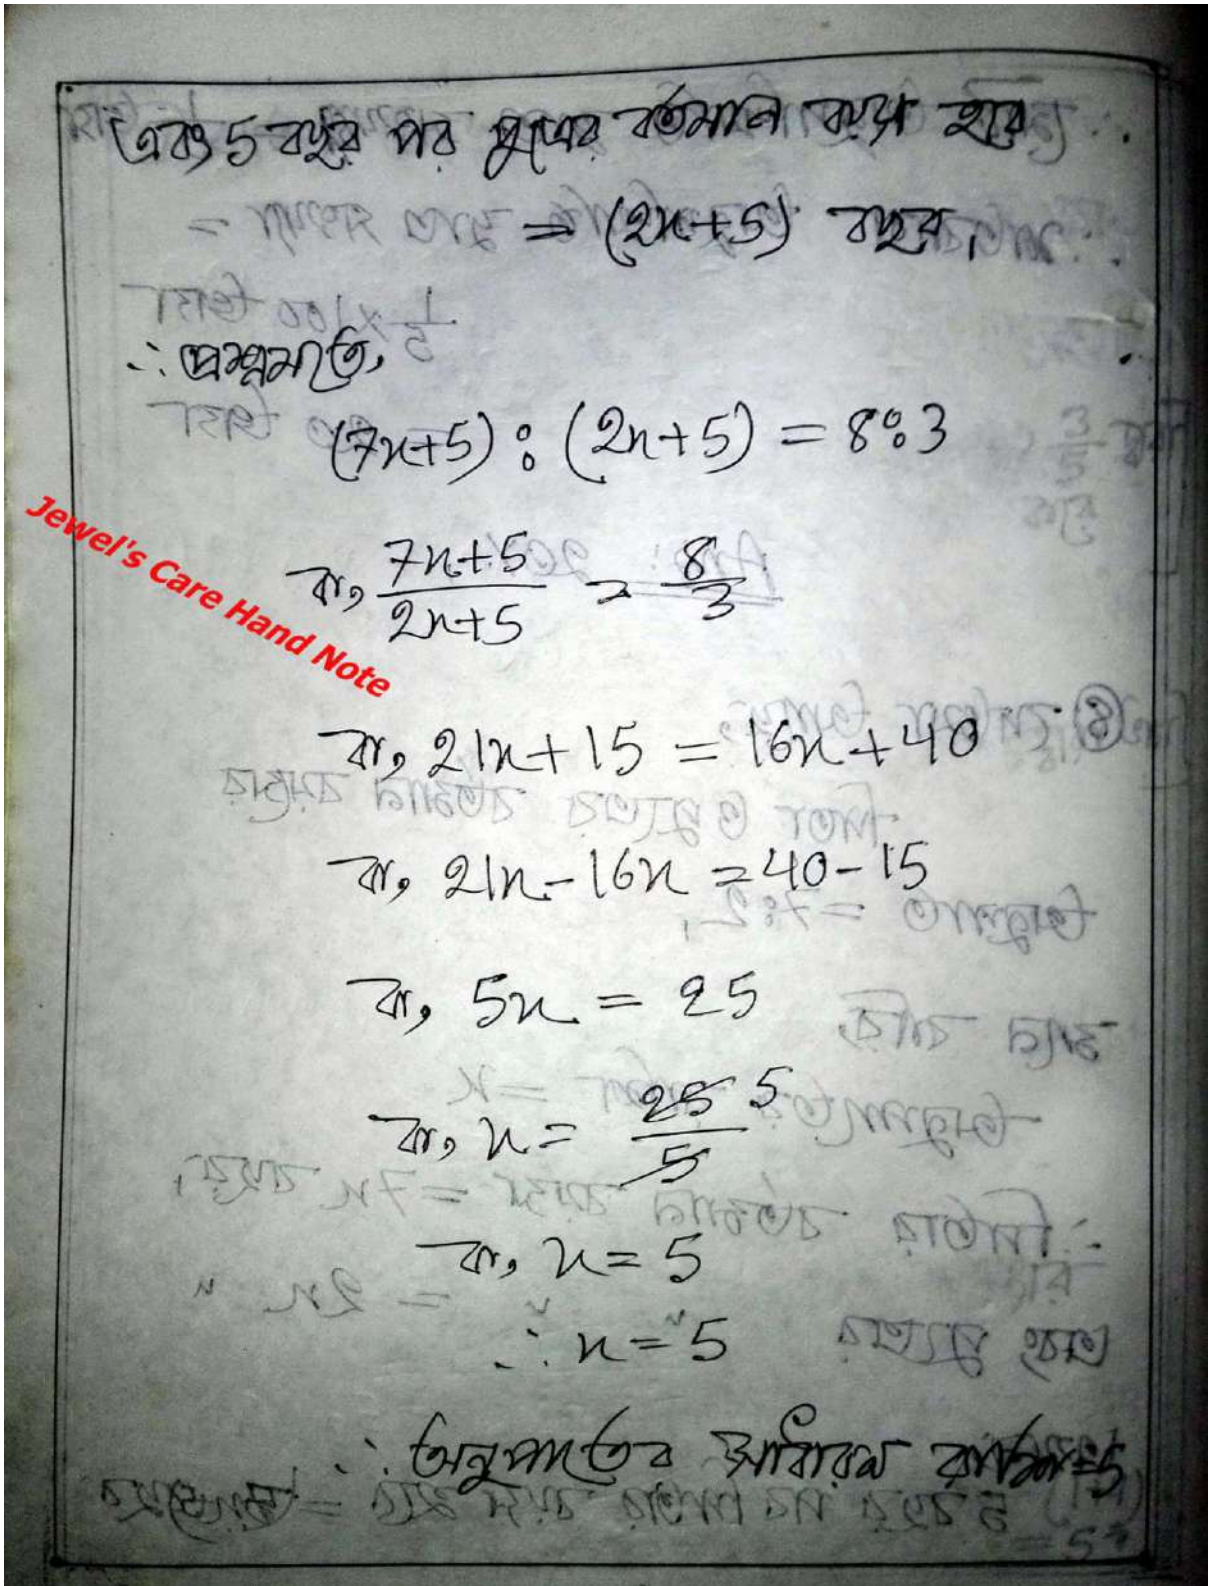 এবং 5 বছর পর পুত্রের বর্তমান বয়স হবে
= (2x+5) বছর।
∴ প্রশ্নমতে,
(7x+5) : (2x+5) = 8:3
বা, 7x+5 / 2x+5 = 8/3
Jewel's Care Hand Note
বা, 21x+15 = 16x+40
বা, 21x-16x = 40-15
বা, 5x = 25
বা, x = 25/5 5
বা, x = 5
∴ x = 5
∴ অনুপাতের সাধারণ রাশি = 5